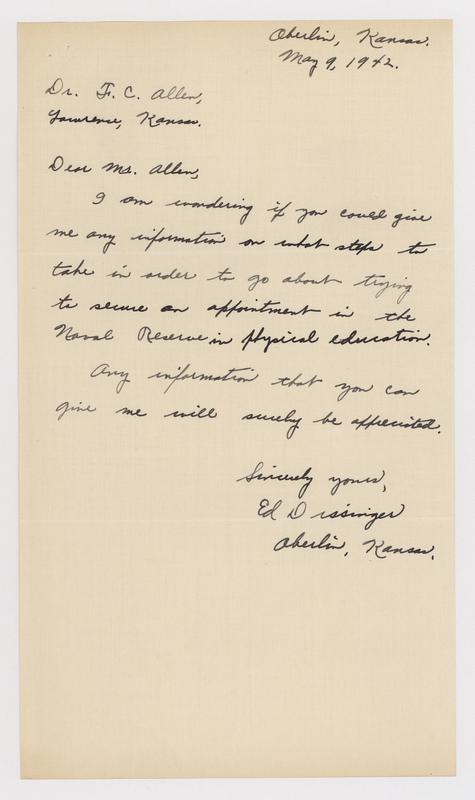 Oberlin, Kansas.
May 9, 1942.
Dr. F. C. Allen,
Lawrence, Kansas.
Dear Mr. Allen,
I am wondering if you could give
me any information on what steps to
take in order to go about trying
to secure an appointment in the
Naval Reserve in physical education.
Any information that you can
give me will surely be appreciated.
Sincerely yours,
Ed Dissinger
Oberlin, Kansas.